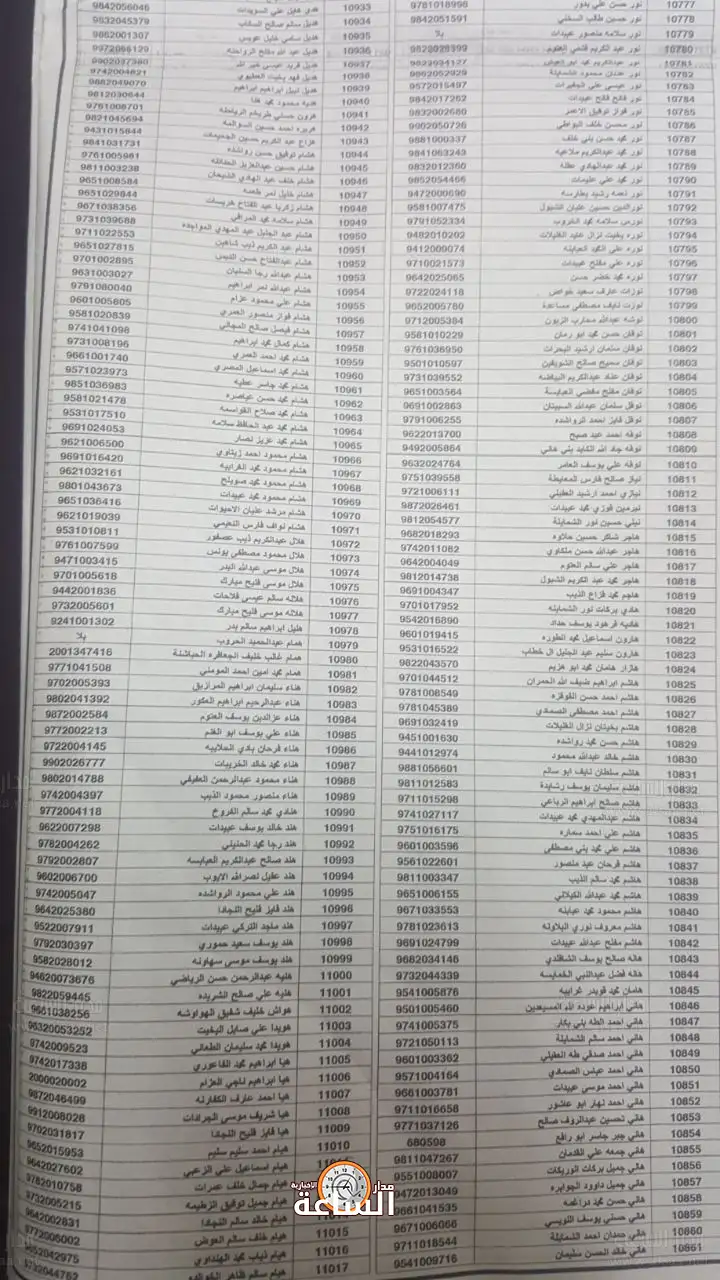 10777 نور حسن علي بدور 9781018998
10778 نور حسين طالب السخني 9842051591
10779 نور سلامه منصور عبيدات بلا
10780 نور عبد الكريم قشمي العتوم
10781 نور عبدالكريم محمد
10782 نور عدنان محمود الشمايلة 9862052929
10783 نور عيسى علي الجغيرات 9572015497
10784 نور فالح فالح عبيدات 9842017262
10785 نور فواز توفيق الاعمر 9832002680
10786 نور محسن خلف البواطي 9902050726
10787 نور محمد حسن بني خلف 9881000337
10788 نور محمد عبدالكريم ملاعبه 9841063243
10789 نور محمد عبدالهادي عطله 9832012360
10790 نور محمد علي عليمات 9852054466
10791 نور نعمه رشيد بطارسه 9472000690
10792 نورالدين حسين عليان الشبول 9581007475
10793 نورس سلامه محمد الخروب 9791052334
10794 نوره بخيت نزال عايد الغليلات 9482010202
10795 نوره علي محمد العبابنه 9412009074
10796 نوره علي مفلح عبيدات 9710021573
10797 نوره محمد خضر حسن 9642025065
10798 نوزات عارف سعيد خواص 9722024118
10799 نوزت نايف مصطفى مساعدة 9652005780
10800 نوشه عبدالله محارب الزبون 9712005384
10801 نوفان حسن محمد ابو رمان 9581010229
10802 نوفان سلمان ارشيد البحرات 9761036950
10803 نوفان سميح صالح الشويفين 9501010597
10804 نوفان عناد عبدالكريم البياضه 9731039552
10805 نوفان مفلح مفضي العبابسة 9651003564
10806 نوفل سلمان عبدالله السبيتان 9691002863
10807 نوفل فايز احمد الرواشده 9791006255
10808 نوفه احمد عبد صبح 9622013700
10809 نوفه جاد الله الكايد بني هاني 9492005864
10810 نوفه علي يوسف العامر 9632024764
10811 نياز صالح فارس المعايطة 9751039558
10812 نيازي احمد ارشيد العقيلي 9721006111
10813 نيرمين فوزي محمد عبيدات 9872026461
10814 نيلي حسين نور الشمايلة 9812054577
10815 هاجر شاكر حسين حلاوه 9682018293
10816 هاجر عبدالله حسن ملكاوي 9742011082
10817 هاجر علي سالم العتوم 9642004049
10818 هاجر محمد عبد الكريم الشبول 9812014738
10819 هاجم محمد فزاع الذيب 9691004347
10820 هادي بركات نور الشمايله 9701017952
10821 هاديه فرهود يوسف حداد 9542016890
10822 هارون اسماعيل محمد الطوره 9601019415
10823 هارون سليم عبد الجليل ال خطاب 9531016522
10824 هازار هامان محمد ابو هزيم 9822043570
10825 هاشم ابراهيم ضيف الله الحمران 9701044512
10826 هاشم احمد حسن القوقزه 9781008549
10827 هاشم احمد مصطفى الصمادي 9781045389
10828 هاشم بخيتان نزال الغليلات 9691032419
10829 هاشم حسن محمد رواشده 9451001630
10830 هاشم خالد عبدالله محمود 9441012974
10831 هاشم سلطان نايف ابو سالم 9881056601
10832 هاشم سليمان يوسف رشايدة 9811012583
10833 هاشم صالح ابراهيم الرباعي 9711015298
10834 هاشم عبدالمهدي محمد عبيدات 9741027117
10835 هاشم علي احمد سماره 9751016175
10836 هاشم علي محمد بني مصطفى 9601003596
10837 هاشم فرحان عبد منصور 9561022601
10838 هاشم محمد سالم الذيب 9811003347
10839 هاشم محمد عبدالله الكيلاني 9651006155
10840 هاشم محمود محمد عبابنه 9671033553
10841 هاشم معروف نوري البلاونه 9781023613
10842 هاشم مفلح عبدالله عبيدات 9691024799
10843 هاله صالح يوسف الشافلدي 9682034146
10844 هاله فضل عبدالنبي الخمايسه 9732044339
10845 هامان محمد قويدر غرايبه 9541005876
10846 هاني ابراهيم عوده الله المسيعدين 9501005460
10847 هاني احمد الطه بني بكار 9741005375
10848 هاني احمد سالم الشمايلة 9721050113
10849 هاني احمد صدقي طه العقيلي 9601003362
10850 هاني احمد عباس الصمادي 9571004164
10851 هاني احمد موسى عبيدات 9661003781
10852 هاني احمد نهار ابو عاشور 9711016658
10853 هاني تحسين عبدالروف صالح 9771037126
10854 هاني جبر جاسر ابو رافع 680598
10855 هاني جمعه علي القدمان 9811047267
10856 هاني جميل بركات الوريكات 9551008007
10857 هاني جميل داوود الجوابره 9472013049
10858 هاني حسن محمد دراغمه 9661041535
10859 هاني حسني يوسف النويسي 9671006066
10860 هاني حمدان احمد الشمايلة 9711018544
10861 هاني خالد الحسن سليمان 9541009716
10933 هدى هايل علي السويدات 9842056046
10934 هديل سالم صالح السقاب 9832045379
10935 هديل سامي خليل عويس 9862001307
10936 هديل عبد الله مفلح الرواحنه 9972066129
10937 هديل فريد عيسى خير الله 9902037360
10938 هديل فهد بخيت العطيوي 9742004821
10939 هديل نبيل ابراهيم ابراهيم 9882049070
10940 هديه محمود محمد هنا 9812030644
10941 هرون حسني طريخم الرياحنه 9761008701
10942 هريره احمد حسين السوالمه 9821045694
10943 هزاع عبد الكريم حسين الجعيمات 9431015844
10944 هشام توفيق حسن رواشده 9841031731
10945 هشام حسين عبدالعزيز الطقاطقه 9761005961
10946 هشام خلف عبد الهادي الشيحان 9811003238
10947 هشام خليل نمر طعمه 9651008584
10948 هشام زكريا عبد الفتاح خريسات 9651029844
10949 هشام سلامه محمد المرافي 9671038356
10950 هشام عبد الجليل عبد المهدي المواجده 9731039688
10951 هشام عبد الكريم ذيب شاهين 9711022553
10952 هشام عبدالفتاح حسن النتيس 9651027815
10953 هشام عبدالله رجا السليان 9701002895
10954 هشام عبدالله نمر ابراهيم 9631003027
10955 هشام علي محمود عزام 9791080040
10956 هشام فواز منصور العمري 9601005605
10957 هشام فيصل صالح المجالي 9581020839
10958 هشام كمال محمد ابراهيم 9741041098
10959 هشام محمد احمد العمري 9731008196
10960 هشام محمد اسماعيل المصري 9661001740
10961 هشام محمد جاسر عطيه 9571023973
10962 هشام محمد حسن عياصره 9851036983
10963 هشام محمد صلاح القواسمه 9581021478
10964 هشام محمد عبد الحافظ سلامه 9531017510
10965 هشام محمد عزيز نصار 9691024053
10966 هشام محمود احمد زيتاوي 9621006500
10967 هشام محمود محمد الغرايبه 9691016420
10968 هشام محمود محمد صويلح 9621032161
10969 هشام محمود محمد عبيدات 9801043673
10970 هشام مرشد عليان الاحيوات 9651036416
10971 هشام نواف فارس النعيمي 9621019039
10972 هلال عبدالكريم ذيب عصفور 9531010811
10973 هلال محمود مصطفى يونس 9761007599
10974 هلال موسى عبدالله البدر 9471003415
10975 هلال موسى فليح مبارك 9701005618
10976 هلاله سالم عيسى فلاحات 9442001836
10977 هلاله موسى فليح مبارك 9732005601
10978 هليل ابراهيم سالم بدر 9241001302
10979 همام عبدالحميد الحروب بلا
10980 همام غالب خليف الجعافره الحياشنة 2001347416
10981 همام محمد امين احمد المومني 9771041508
10982 هناء سليمان ابراهيم المرازيق 9702005393
10983 هناء عبدالرحيم ابراهيم العكور 9802041392
10984 هناء عزالدين يوسف العتوم 9872002584
10985 هناء علي يوسف ابو الغنم 9772002213
10986 هناء فرحان بادي الحلاليبه 9722004145
10987 هناء محمد خالد الخريبات 9902026777
10988 هناء محمود عبدالرحمن العفيفي 9802014788
10989 هناء منصور محمود الذيب 9742004397
10990 هنادي محمد سالم الفروخ 9772004118
10991 هند خالد يوسف عبيدات 9622007298
10992 هند رجا محمد الحنيني 9782004262
10993 هند صالح عبدالكريم العبابسه 9792002807
10994 هند عقيل نصرالله الايوب 9602006700
10995 هند علي محمود الرواشده 9742005047
10996 هند فايز فليح النجادا 9642025380
10997 هند ماجد التركي عبيدات 9522007911
10998 هند يوسف سعيد حموري 9792030397
10999 هند يوسف موسى سهاونه 9582028012
11000 هنيه عبدالرحمن حسن الرياضي 94620073676
11001 هنيه علي صالح الشريده 9822059445
11002 هواش خليف شفيق الهواوشه 9661038256
11003 هويدا علي صايل البخيت 96320053252
11004 هويدا محمد سليمان الطعاني 9742009523
11005 هيا ابراهيم محمد القاعوري 9742017338
11006 هيا ابراهيم ناجي العزام 2000020002
11007 هيا احمد عارف الكفارنه 9872046499
11008 هيا شريف موسى الجرادات 9912008028
11009 هيا فايز فليح النجادا 9702031817
11010 هيام احمد سليم سليم 9652015953
هيام اسماعيل علي الزعبي 9642027602
هيام جمال خلف عمرات 9782010758
هيام جميل توفيق الزطيمه 9732005215
هيام خالد سالم النجادا 9642002831
11015 هيام خلف سالم العوض 9772006002
11016 هيام ذياب محمد الهنداوي 9652042975
11017 هيام سالم ظاهر 9732044762
مدار
الساعة
الاخبارية